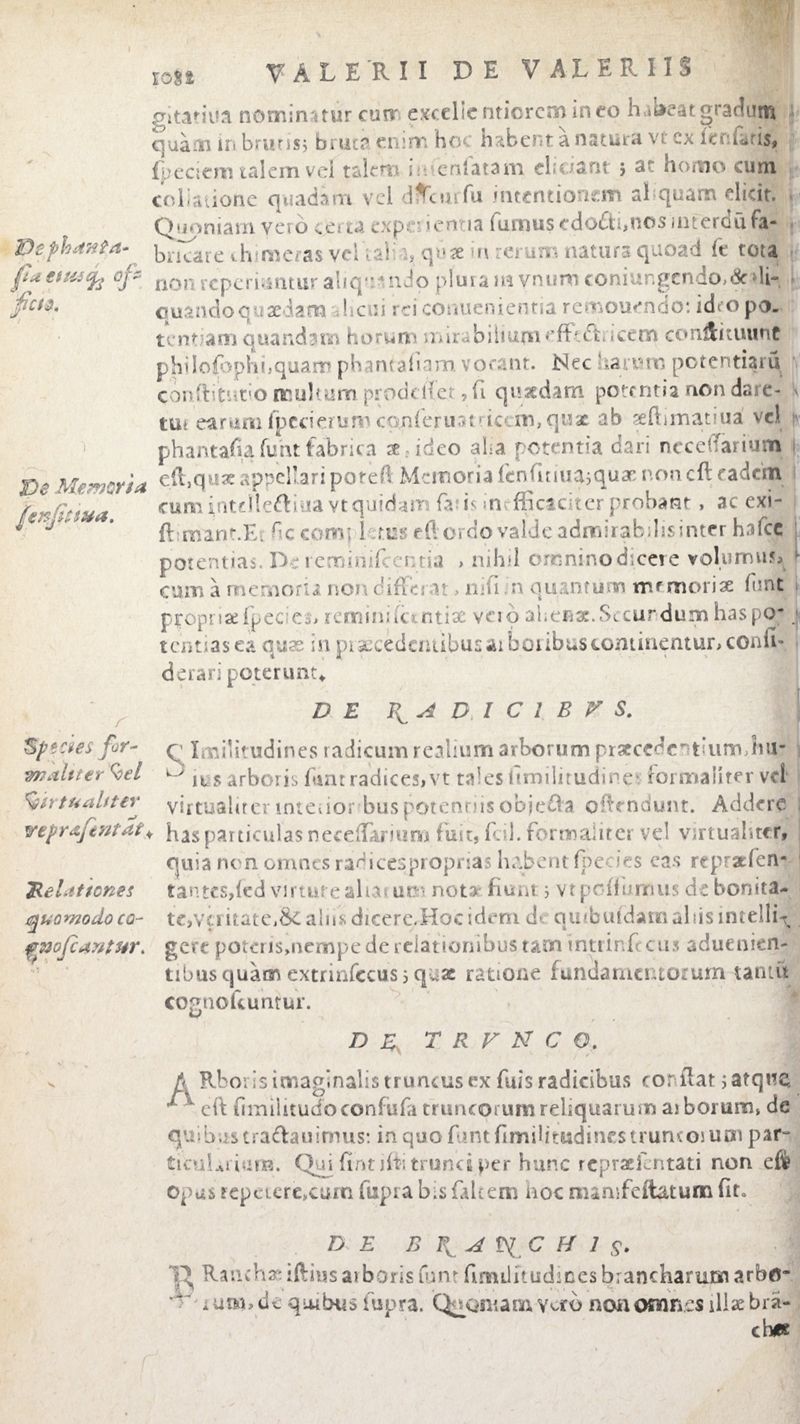 1082 VALERII DE VALERIIS
gitatiua nominatur cum excellentiorem in eo habeat gradum
quàm in brutis; bruta enim hoc habent à natura vt ex sensatis,
speciem talem vel talem insensatam eliciant; at homo cum
collatione quadam vel discursu intentionem aliquam elicit.
Quoniam verò certa experientia sumus edocti, nos interdū fa-
De phanta-
sia eiusq; of-
ficio.
bricare chimeras vel talia, quæ in rerum natura quoad se tota
non reperiantur aliquando plura in vnum coniungendo, & ali-
quando quædam alicui rei conuenientia remouendo: ideo po-
tentiam quandam horum mirabilium effectricem constituunt
philosophi, quam phantasiam vocant. Nec harum potentiarū
constitutio multum prodesset, si quædam potentia non dare-
tur earum specierum conseruatricem, quæ ab æstimatiua vel
phantasia sunt fabricatæ, ideo alia potentia dari necessarium
De Memoria
sensitiua.
est, quæ appellari potest Memoria sensitiua; quæ non est eadem
cum intellectiua vt quidam satis inefficaciter probant, ac exi-
stimant. Et sic completus est ordo valde admirabilis inter hasce
potentias. De reminiscentia, nihil omnino dicere volumus,
cum à memoria non differat, nisi in quantum memoriæ sunt
propriæ species, reminiscentiæ verò alienæ. Secundum has po-
tentias ea quæ in præcedentibus arboribus continentur, consi-
derari poterunt.
DE RADICIBVS.
Species for-
maliter vel
virtualiter
repræsentāt.
SImilitudines radicum realium arborum præcedentium, hu-
ius arboris sunt radices, vt tales similitudines formaliter vel
virtualiter interioribus potentiis obiecta ostendunt. Addere
has particulas necessarium fuit, scil. formaliter vel virtualiter,
quia non omnes radices proprias habent species eas repræsen-
Relationes
quomodo co-
gnoscantur.
tantes, sed virtute aliarum notæ fiunt; vt possumus de bonita-
te, veritate, & aliis dicere. Hoc idem de quibusdam aliis intelli-
gere poteris, nempe de relationibus tam intrinsecus aduenien-
tibus quàm extrinsecus; quæ ratione fundamentorum tantū
cognoscuntur.
DE TRVNCO.
ARboris imaginalis truncus ex suis radicibus constat; atque
est similitudo confusa truncorum reliquarum arborum, de
quibus tractauimus: in quo sunt similitudines truncorum par-
ticularium. Qui sint isti trunci per hunc repræsentati non est
opus repetere, cum supra bis saltem hoc manifestatum sit.
DE BRANCHIS.
BRanchæ istius arboris sunt similitudines brancharum arbo-
rum, de quibus supra. Quoniam verò non omnes illæ brā-
chæ